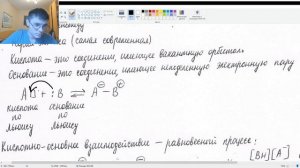 (самая современная)
Кислота – это соединение, имеющее вакантную орбиталь
Основание – это соединение, имеющее неподеленную электронную пару
A□ + :B ⇌ A⊖–B⊕
кислота основание
по по
Льюису Льюису
Кислотно-основное взаимодействие – равновесный процесс:
[BH] [A]